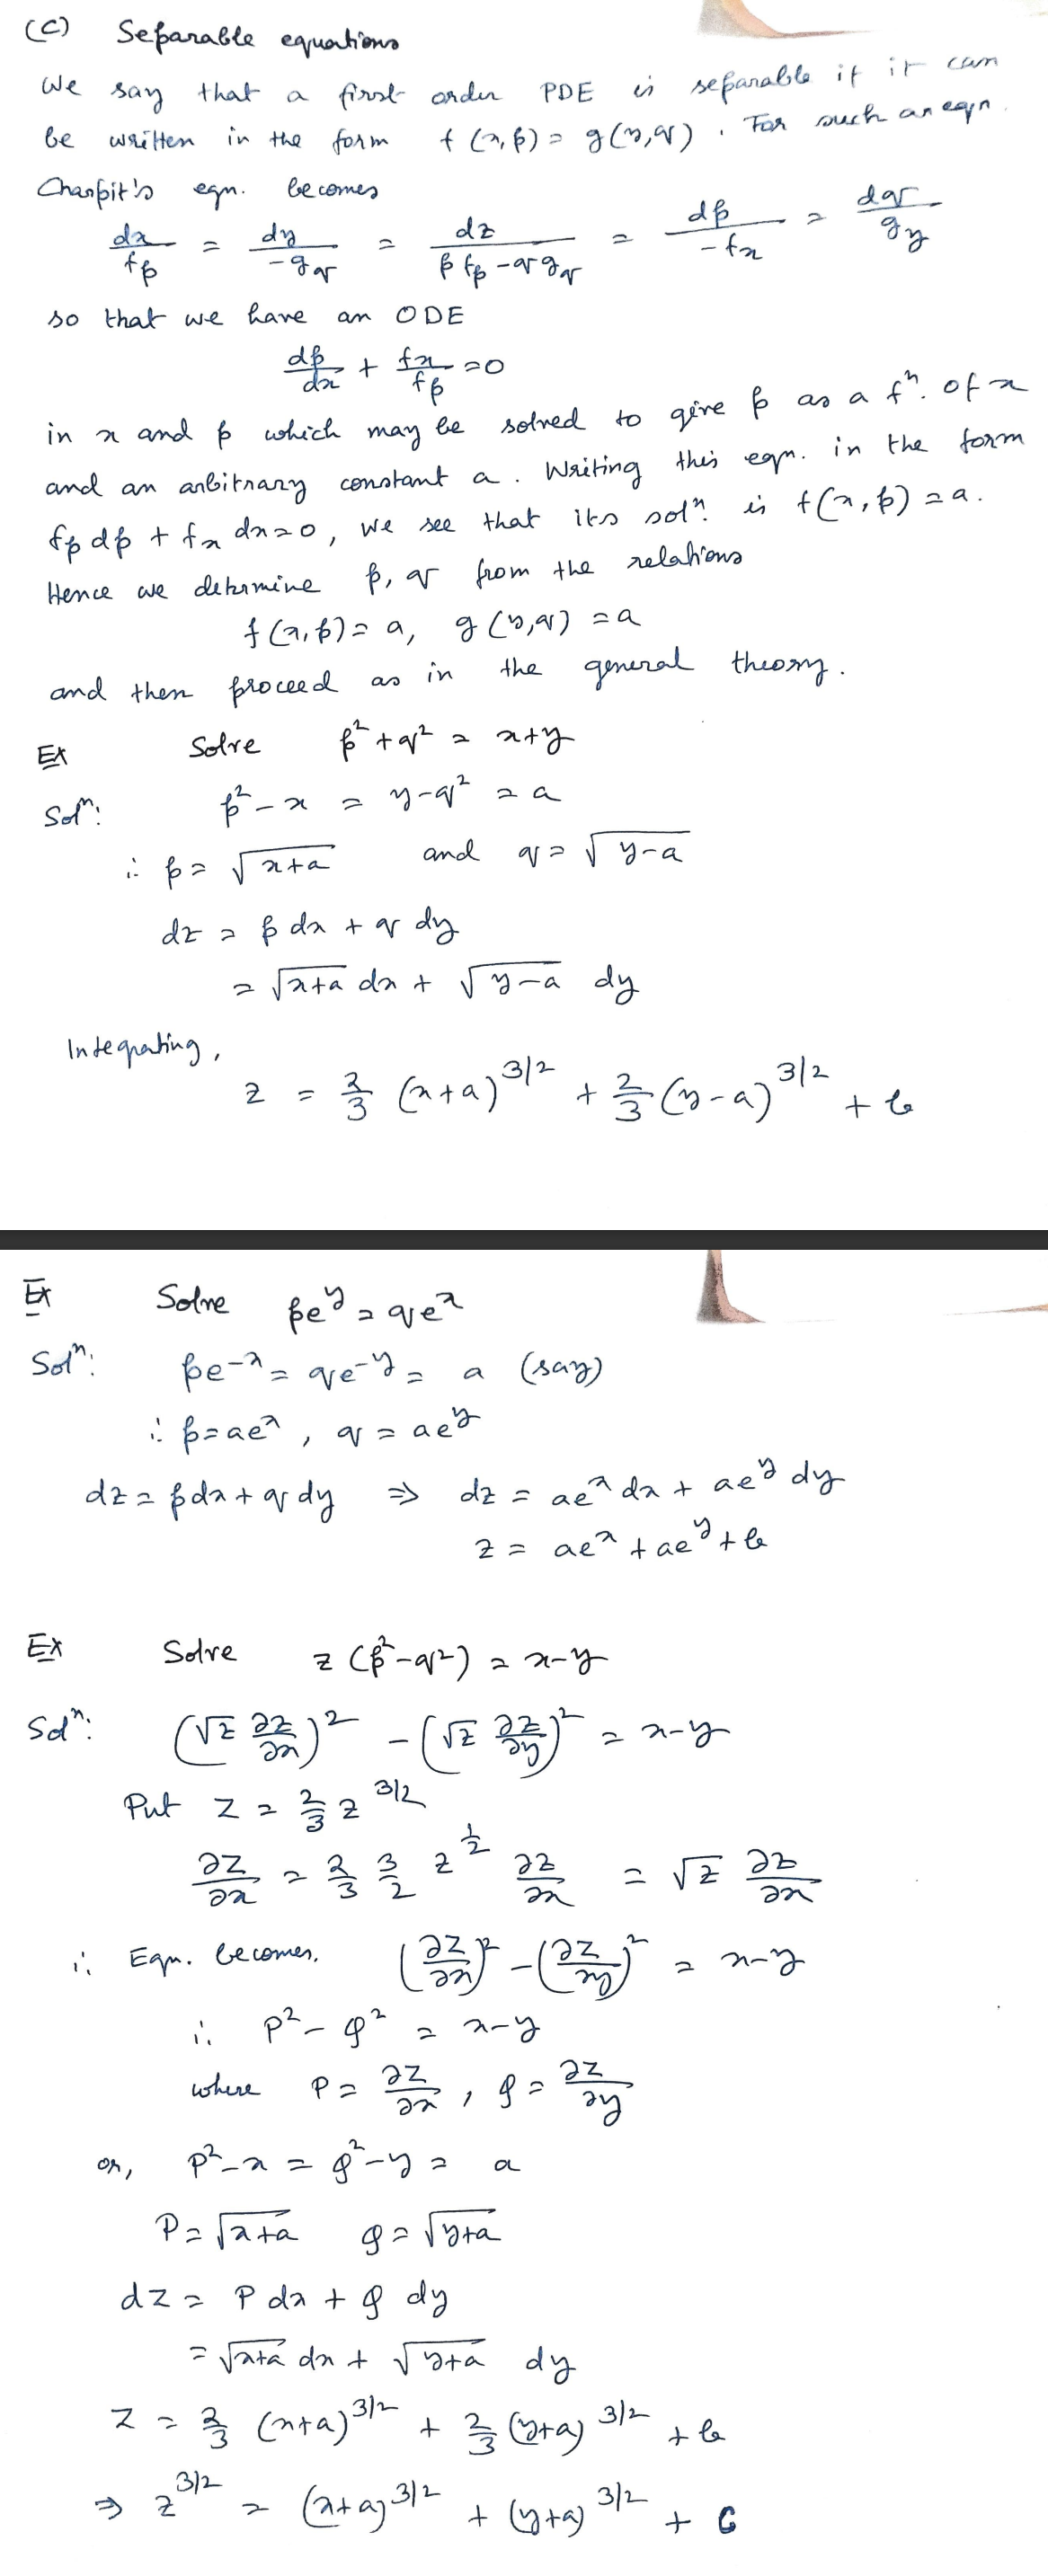 (C) Separable equations
We say that a first order PDE is separable if it can
be written in the form f(x,p) = g(y,q). For such an eqn.
Charpit's eqn. becomes
dx/f_p = dy/-g_q = dz/(p f_p - q g_q) = dp/-f_x = dq/g_y
so that we have an ODE
dp/dx + f_x/f_p = 0
in x and p which may be solved to give p as a fⁿ. of x
and an arbitrary constant a. Writing this eqn. in the form
f_p dp + f_x dx = 0, we see that its solⁿ. is f(x,p) = a.
Hence we determine p, q from the relations
f(x,p) = a, g(y,q) = a
and then proceed as in the general theory.
Ex Solve p² + q² = x+y
Solⁿ: p² - x = y - q² = a
∴ p = √(x+a) and q = √(y-a)
dz = p dx + q dy
= √(x+a) dx + √(y-a) dy
Integrating,
z = 2/3 (x+a)^3/2 + 2/3 (y-a)^3/2 + b
Ex Solve pe^y = qe^x
Solⁿ: pe^-x = qe^-y = a (say)
∴ p = ae^x, q = ae^y
dz = pdx + q dy ⇒ dz = ae^x dx + ae^y dy
z = ae^x + ae^y + b
Ex Solve z(p² - q²) = x-y
Solⁿ: (√z ∂z/∂x)² - (√z ∂z/∂y)² = x-y
Put Z = 2/3 z^3/2
∂Z/∂x = 2/3 3/2 z^1/2 ∂z/∂x = √z ∂z/∂x
∴ Eqn. becomes, (∂Z/∂x)² - (∂Z/∂y)² = x-y
∴ P² - Q² = x-y
where P = ∂Z/∂x, Q = ∂Z/∂y
or, P² - x = Q² - y = a
P = √(x+a) Q = √(y+a)
dZ = P dx + Q dy
= √(x+a) dx + √(y+a) dy
Z = 2/3 (x+a)^3/2 + 2/3 (y+a)^3/2 + b
⇒ z^3/2 = (x+a)^3/2 + (y+a)^3/2 + C